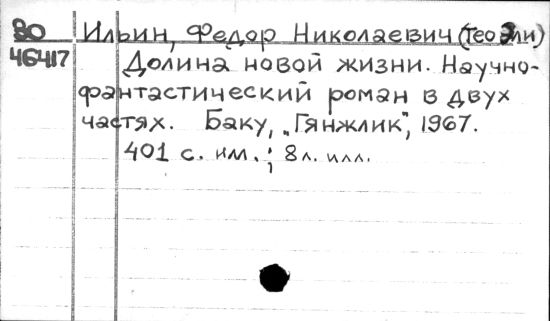 80 Ильин, Федор Николаевич (Тео Эли)
46417 Долина новой жизни. Научно-
фантастический роман в двух
частях. Баку, „Гянжлик", 1967.
401 с. им.; 8 л. илл.